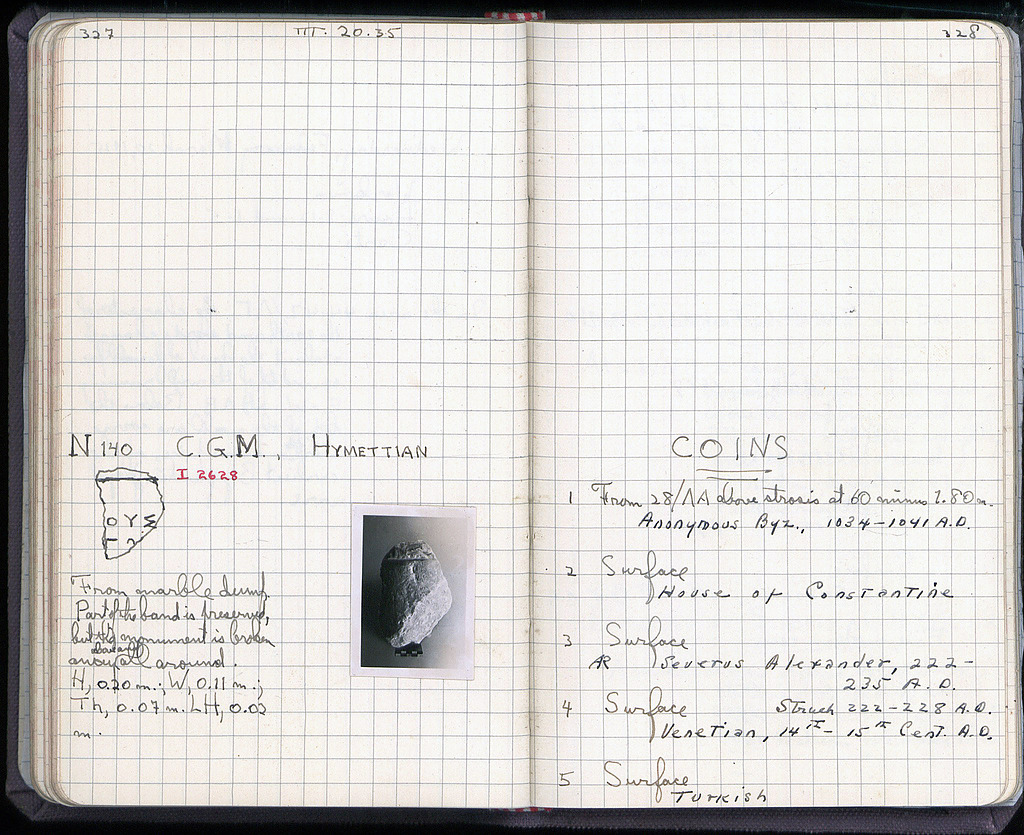 327
ΠΓ. 20.35
N 140 C.G.M., HYMETTIAN
I 2628
O Y
From marble dump.
Part of the band is preserved,
but the monument is broken
above and
away all around.
H, 0.20 m.; W, 0.11 m.;
Th, 0.07 m. LH, 0.02
m.
328
COINS
1 From 28/ΛΑ above strosis at 60 minus 1.80 m.
Anonymous Byz., 1034-1041 A.D.
2 Surface
House of Constantine
3 Surface
AR Severus Alexander, 222-
235 A.D.
4 Surface Struck 222-228 A.D.
Venetian, 14th - 15th Cent. A.D.
5 Surface
Turkish